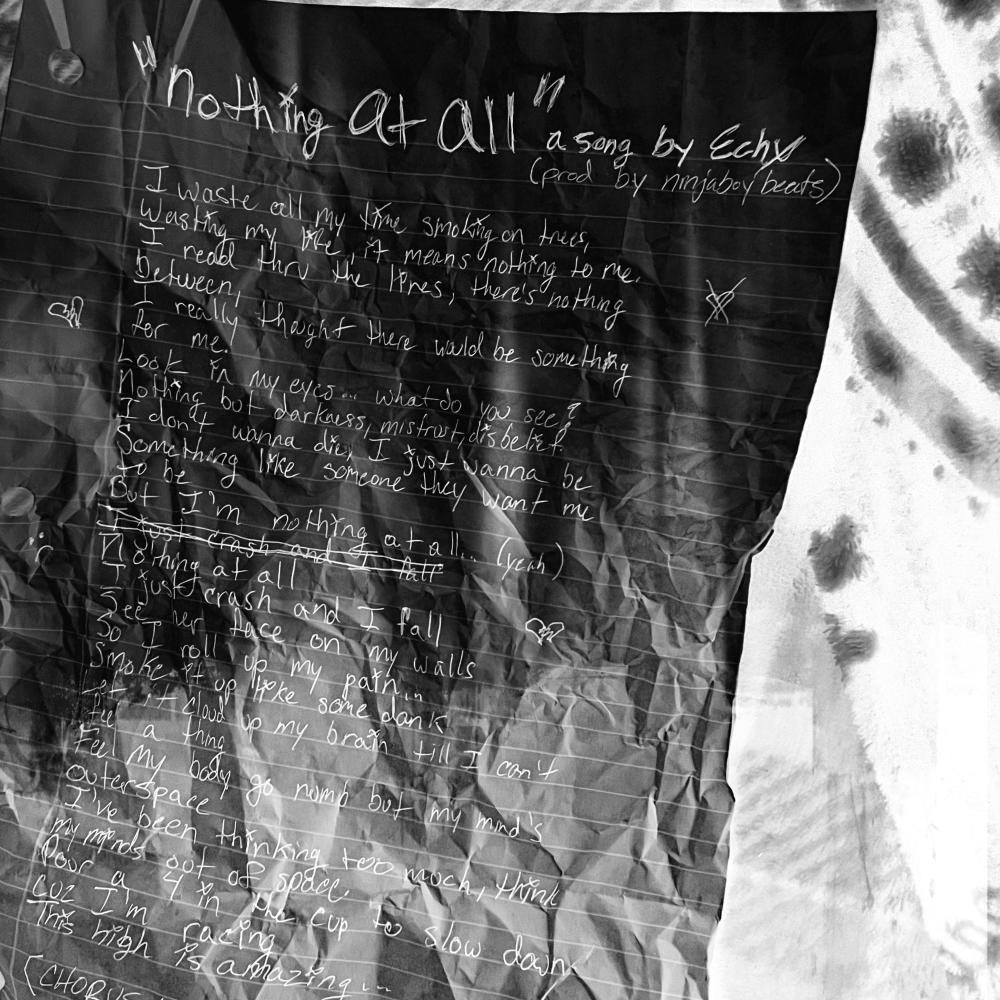 "nothing at all"
a song by Echx
(prod by ninjaboy beats)
I waste all my time smoking on trees,
Wasting my life, it means nothing to me.
I read thru the lines, there's nothing
between,
I really thought there would be something
for me.
Look in my eyes... what do you see?
Nothing but darkness, mistrust, disbelief.
I don't wanna die, I just wanna be
Something like someone they want me
to be
But I'm nothing at all... (yeah)
I just crash and I fall
Nothing at all
I just crash and I fall
See her face on my walls
So I roll up my pain...
Smoke it up like some dank
Let it cloud up my brain till I can't
feel a thing
Feel my body go numb but my mind's
outerspace
I've been thinking too much, think
my minds out of space,
Pour a 4 in the cup to slow down
cuz I'm racing
This high is amazing...
(CHORUS